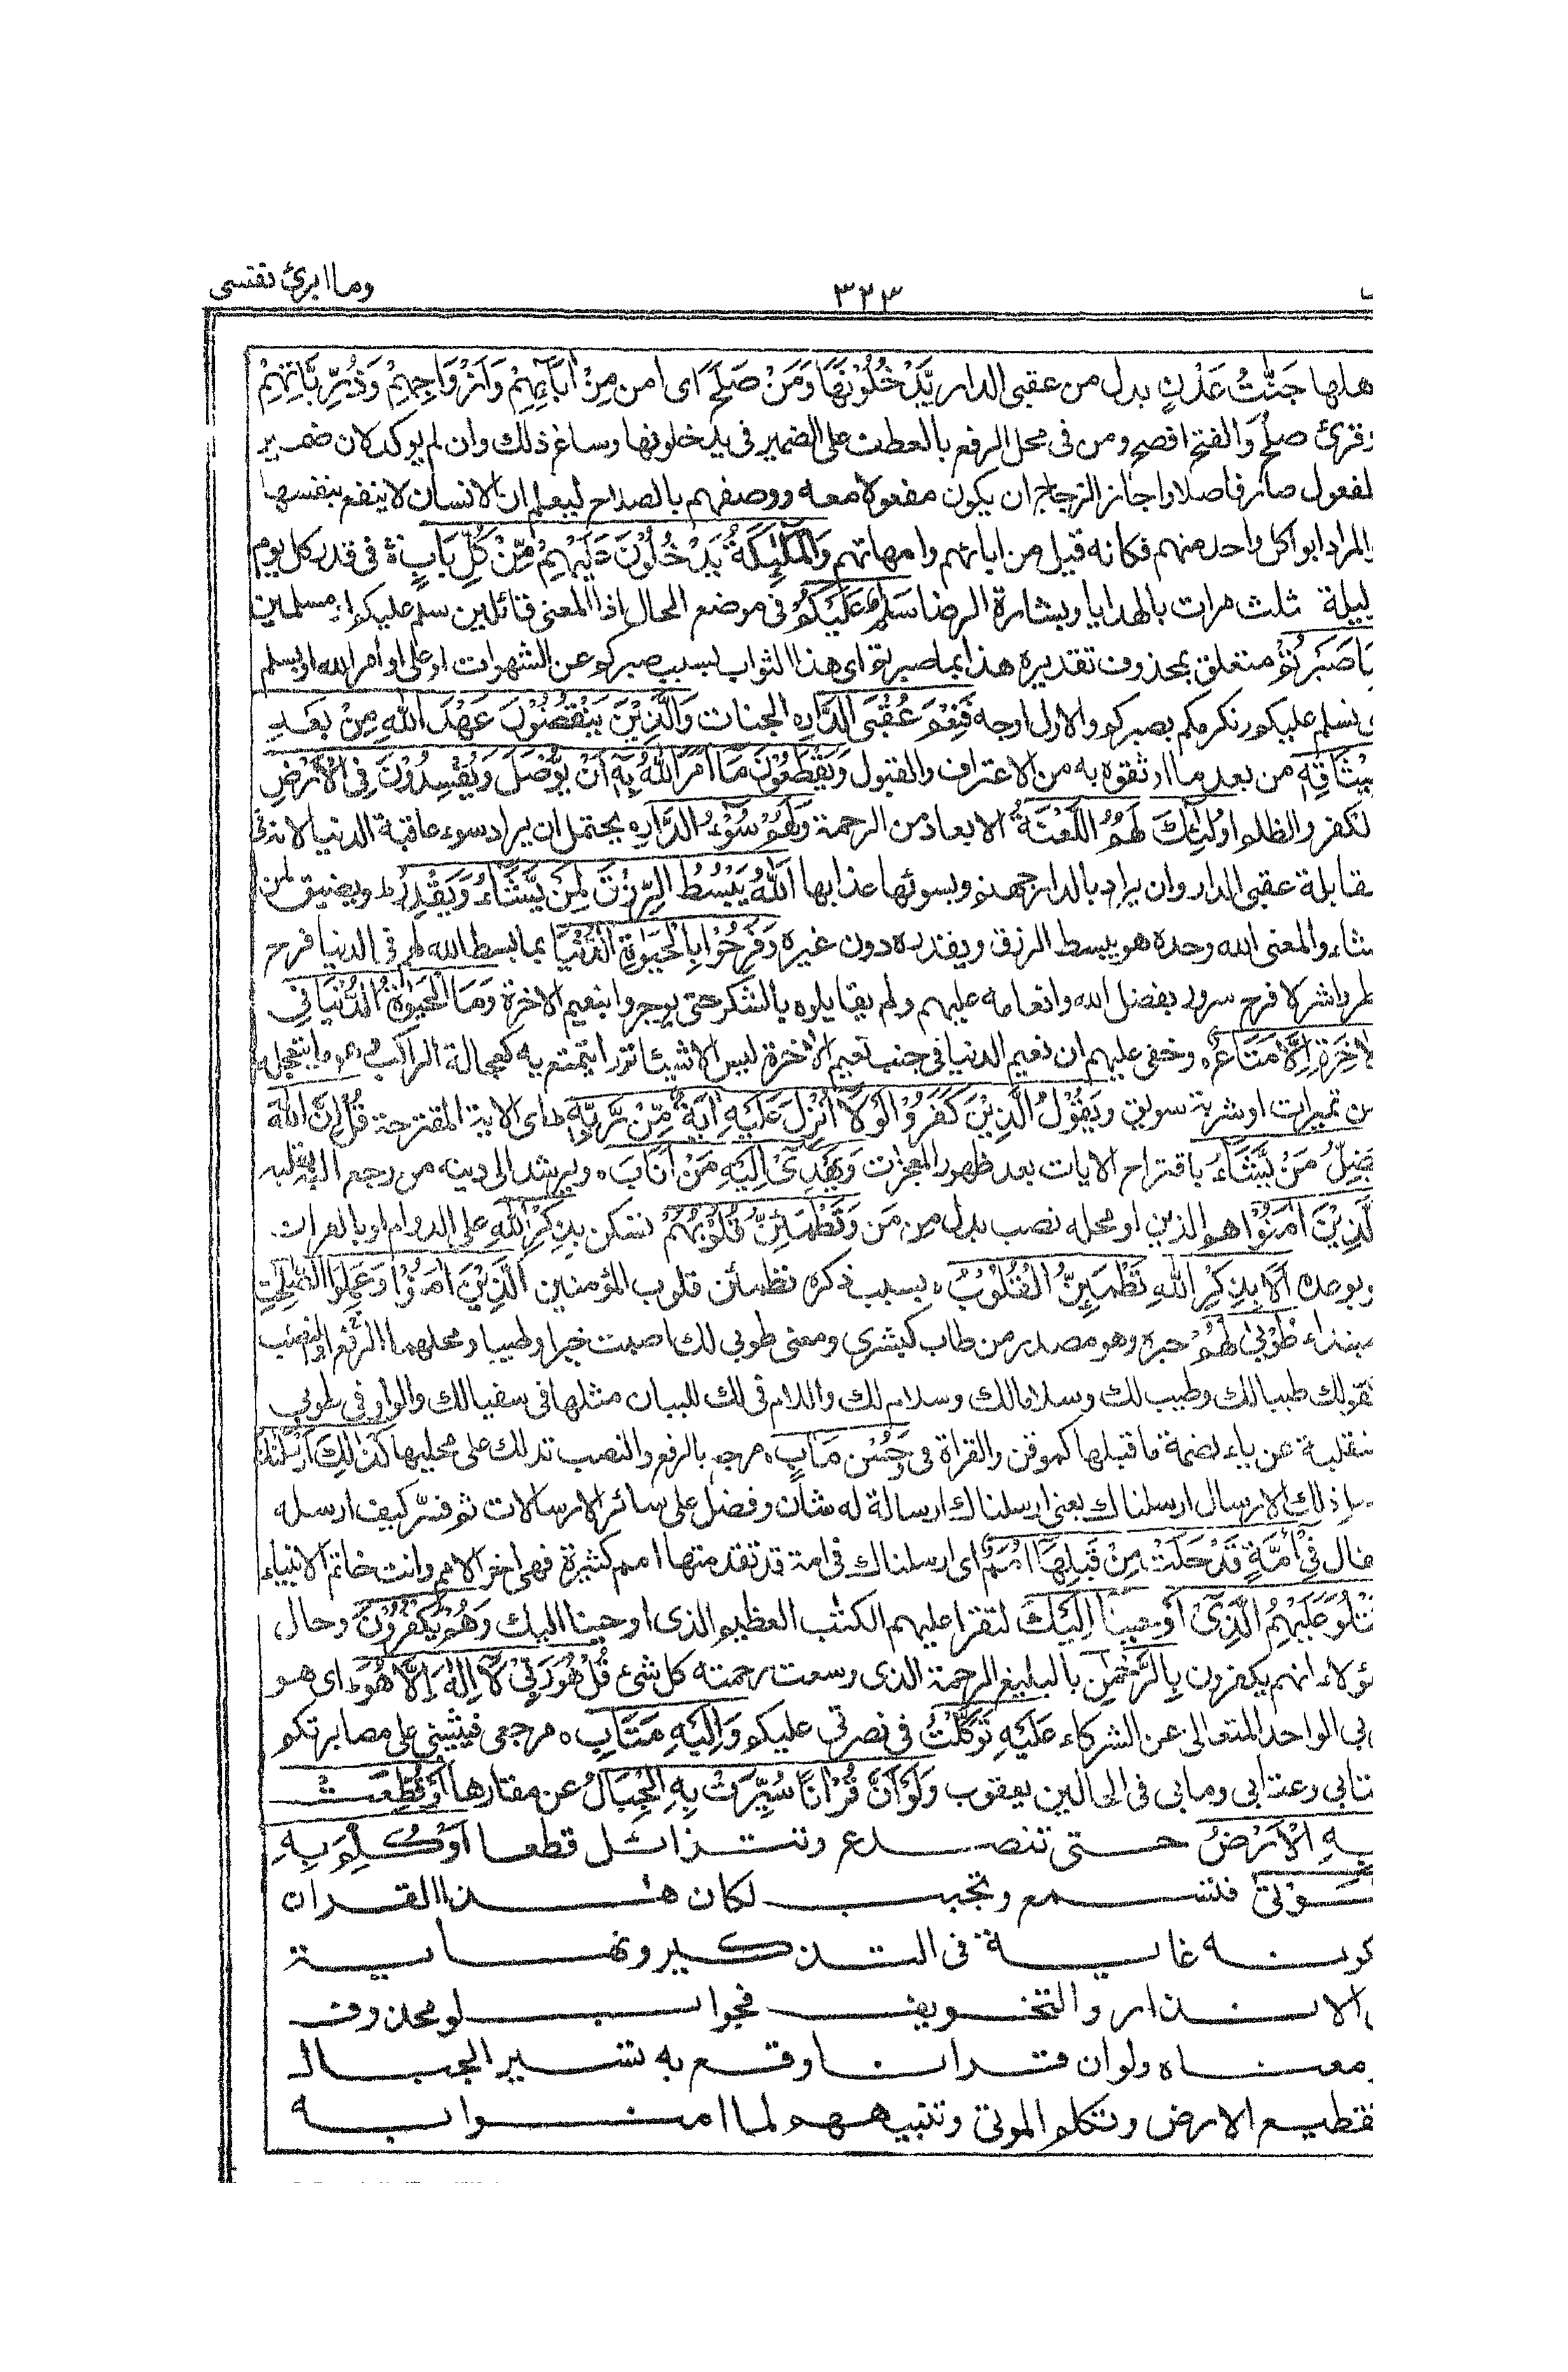 وما ابرئ نفسى
٣٢٣
هلها جَنّٰتُ عَدْنٍ بدل من عقبى الدار يَّدْخُلُوْنَهَا وَمَنْ صَلَحَ اى امن مِنْ اٰبَآئِهِمْ وَاَزْوَاجِهِمْ وَذُرِّيّٰتِهِمْ
وقرئ صلُح والفتح افصح ومن فى محل الرفع بالعطف على الضمير فى يدخلونها وساغ ذلك وان لم يوكد لان ضمير
لمفعول صار فاصلا واجاز الزجاج ان يكون مفعولا معه ووصفهم بالصلاح ليعلم ان الانسان لا ينفع بنفسها
والمراد ابوا كل واحد منهم فكانه قيل من ابائهم وامهاتهم وَالْمَلٰٓئِكَةُ يَدْخُلُوْنَ عَلَيْهِمْ مِّنْ كُلِّ بَابٍ فى قدر كل يوم
ليلة ثلث مرات بالهدايا وبشارة الرضا سَلٰمٌ عَلَيْكُمْ فى موضع الحال اذ المعنى قائلين سلم عليكم او مسلمين
بِمَا صَبَرْتُمْ متعلق بمحذوف تقديره هذا بما صبرتم اى هذا الثواب بسبب صبركم عن الشهوات او على اوامر الله او بسلم
ى نسلم عليكم ونكرمكم بصبركم والاول اوجه فَنِعْمَ عُقْبَى الدَّارِ ه الجنات وَالَّذِيْنَ يَنْقُضُوْنَ عَهْدَ اللّٰهِ مِنْ بَعْدِ
مِيْثَاقِهٖ من بعد ما اوثقوه به من الاعتراف والقبول وَيَقْطَعُوْنَ مَا اَمَرَ اللّٰهُ بِهٖٓ اَنْ يُّوْصَلَ وَيُفْسِدُوْنَ فِى الْاَرْضِ
لكفر والظلم اُولٰٓئِكَ لَهُمُ اللَّعْنَةُ الابعاد من الرحمة وَلَهُمْ سُوْٓءُ الدَّارِ ه يحتمل ان يراد سوء عاقبة الدنيا لانه فى
مقابلة عقبى الدار وان يراد بالدار جهنم وبسوئها عذابها اَللّٰهُ يَبْسُطُ الرِّزْقَ لِمَنْ يَّشَآءُ وَيَقْدِرُ ط ويضيق لمن
شاء والمعنى الله وحده هو يبسط الرزق ويقدره دون غيره وَفَرِحُوْا بِالْحَيٰوةِ الدُّنْيَا بما بسط الله لهم فى الدنيا فرح
طر واشر لا فرح سرور بفضل الله وانعامه عليهم ولم يقابلوه بالشكر حتى يوجروا بنعيم الاخرة وَمَا الْحَيٰوةُ الدُّنْيَا فِى
لْاٰخِرَةِ اِلَّا مَتَاعٌ ه وخفى عليهم ان نعيم الدنيا فى جنب نعيم الاخرة ليس الا شيئا نزرا يتمتع به كعجالة الراكب وهو ما يتعجله
من تميرات او شربة سويق وَيَقُوْلُ الَّذِيْنَ كَفَرُوْا لَوْلَآ اُنْزِلَ عَلَيْهِ اٰيَةٌ مِّنْ رَّبِّهٖ ط اى الاية المقترحة قُلْ اِنَّ اللّٰهَ
يُضِلُّ مَنْ يَّشَآءُ باقتراح الايات بعد ظهور المعجزات وَيَهْدِىْٓ اِلَيْهِ مَنْ اَنَابَ ه ويرشد الى دينه من رجع اليه بقلبه
لَّذِيْنَ اٰمَنُوْا هم الذين او محله نصب بدل من مَن وَتَطْمَئِنُّ قُلُوْبُهُمْ تسكن بِذِكْرِ اللّٰهِ على الدوام او بالقران
وبوعده اَلَا بِذِكْرِ اللّٰهِ تَطْمَئِنُّ الْقُلُوْبُ ه بسبب ذكره تطمئن قلوب المؤمنين اَلَّذِيْنَ اٰمَنُوْا وَعَمِلُوا الصّٰلِحٰتِ
مبتداء طُوْبٰى لَهُمْ خبره وهو مصدر من طاب كبشرى ومعنى طوبى لك اصبت خيرا وطيبا ومحلهما الرفع او النصب
كقولك طيبا لك وطيب لك وسلاما لك وسلام لك واللام فى لك للبيان مثلها فى سقيا لك والواو فى طوبى
منقلبة عن ياء لضمة ما قبلها كموقن والقراة فى وَحُسْنُ مَاٰبٍ ه مرجع بالرفع والنصب تدلك على محليها كَذٰلِكَ اَرْسَلْنٰكَ
مثل ذلك الارسال ارسلناك يعنى ارسلناك ارسالة له شان وفضل على سائر الارسالات ثم فسّر كيف ارسله
فقال فِىْٓ اُمَّةٍ قَدْ خَلَتْ مِنْ قَبْلِهَآ اُمَمٌ اى ارسلناك فى امة قد تقدمتها امم كثيرة فهى اخر الامم وانت خاتم الانبياء
لِتَتْلُوَ عَلَيْهِمُ الَّذِىْٓ اَوْحَيْنَآ اِلَيْكَ لتقرا عليهم الكتٰب العظيم الذى اوحينا اليك وَهُمْ يَكْفُرُوْنَ وحال
ؤلاء انهم يكفرون بِالرَّحْمٰنِ بالبليغ الرحمة الذى وسعت رحمته كل شئ قُلْ هُوَ رَبِّىْ لَآ اِلٰهَ اِلَّا هُوَ ج اى هو
ربى الواحد المتعالى عن الشركاء عَلَيْهِ تَوَكَّلْتُ فى نصرتى عليكم وَاِلَيْهِ مَتَابِ ه مرجعى فيثيبنى على مصابرتكم
متابى وعقابى ومابى فى الحالين يعقوب وَلَوْ اَنَّ قُرْاٰنًا سُيِّرَتْ بِهِ الْجِبَالُ عن مقارها اَوْ قُطِّعَتْ
بِهِ الْاَرْضُ حتى تنصدع وتتزائل قطعا اَوْ كُلِّمَ بِهِ
الْمَوْتٰى فتسمع وتجيب لكان هذا القران
لكونه غاية فى التذكير ونهاية
ى الانذار والتخويف فجواب لو محذوف
و معناه ولو ان قرانا وقع به تسيير الجبال
تقطيع الارض وتكلم الموتى وتنبيههم لما امنوا به